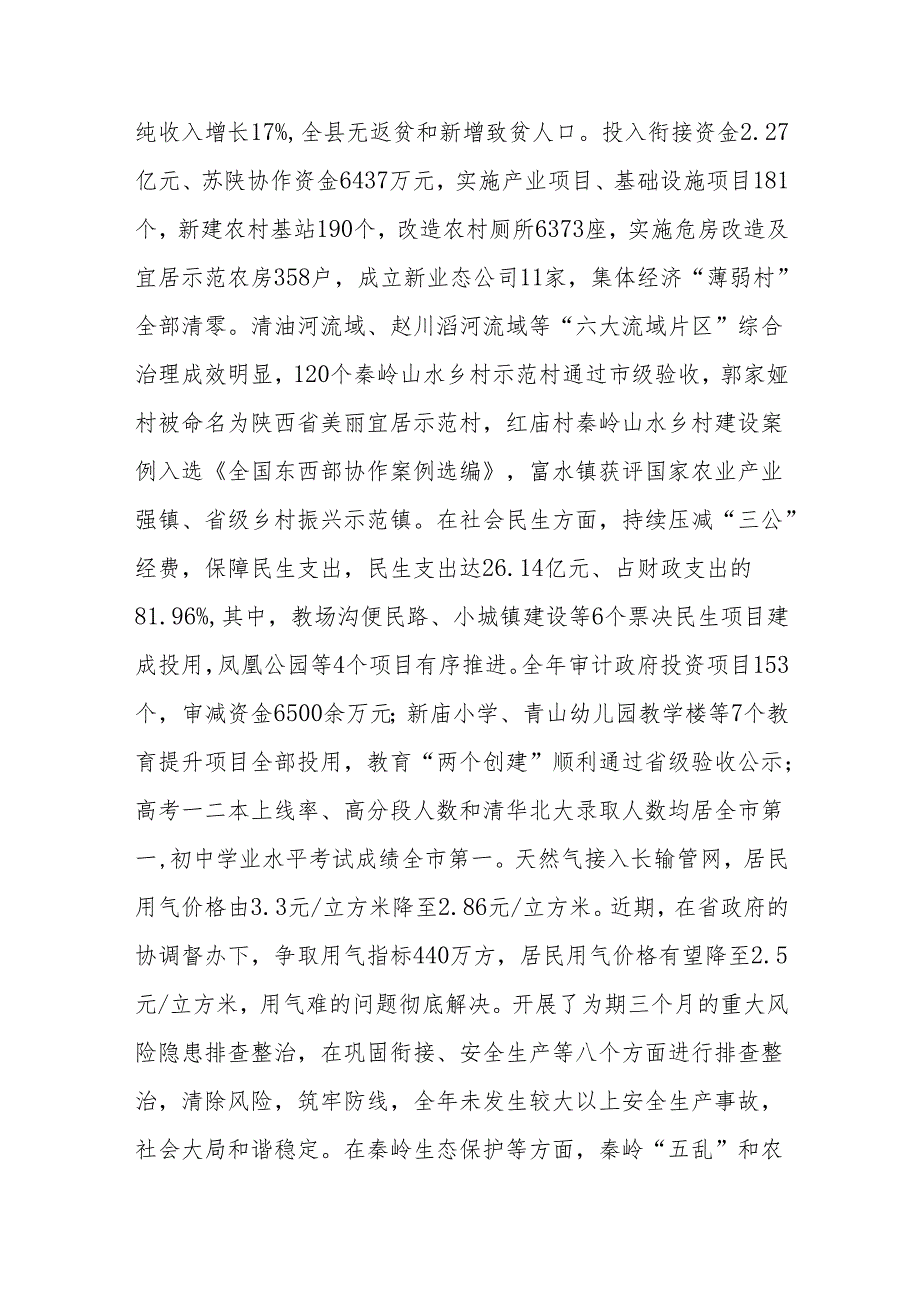 纯收入增长17%,全县无返贫和新增致贫人口。投入衔接资金2.27
亿元、苏陕协作资金6437万元，实施产业项目、基础设施项目181
个，新建农村基站190个，改造农村厕所6373座，实施危房改造及
宜居示范农房358户，成立新业态公司11家，集体经济“薄弱村”
全部清零。清油河流域、赵川滔河流域等“六大流域片区”综合
治理成效明显，120个秦岭山水乡村示范村通过市级验收，郭家娅
村被命名为陕西省美丽宜居示范村，红庙村秦岭山水乡村建设案
例入选《全国东西部协作案例选编》，富水镇获评国家农业产业
强镇、省级乡村振兴示范镇。在社会民生方面，持续压减“三公”
经费，保障民生支出，民生支出达26.14亿元、占财政支出的
81.96%,其中，教场沟便民路、小城镇建设等6个票决民生项目建
成投用,凤凰公园等4个项目有序推进。全年审计政府投资项目153
个，审减资金6500余万元；新庙小学、青山幼儿园教学楼等7个教
育提升项目全部投用，教育“两个创建”顺利通过省级验收公示；
高考一二本上线率、高分段人数和清华北大录取人数均居全市第
一,初中学业水平考试成绩全市第一。天然气接入长输管网，居民
用气价格由3.3元/立方米降至2.86元/立方米。近期，在省政府的
协调督办下，争取用气指标440万方，居民用气价格有望降至2.5
元/立方米，用气难的问题彻底解决。开展了为期三个月的重大风
险隐患排查整治，在巩固衔接、安全生产等八个方面进行排查整
治，清除风险，筑牢防线，全年未发生较大以上安全生产事故，
社会大局和谐稳定。在秦岭生态保护等方面，秦岭“五乱”和农